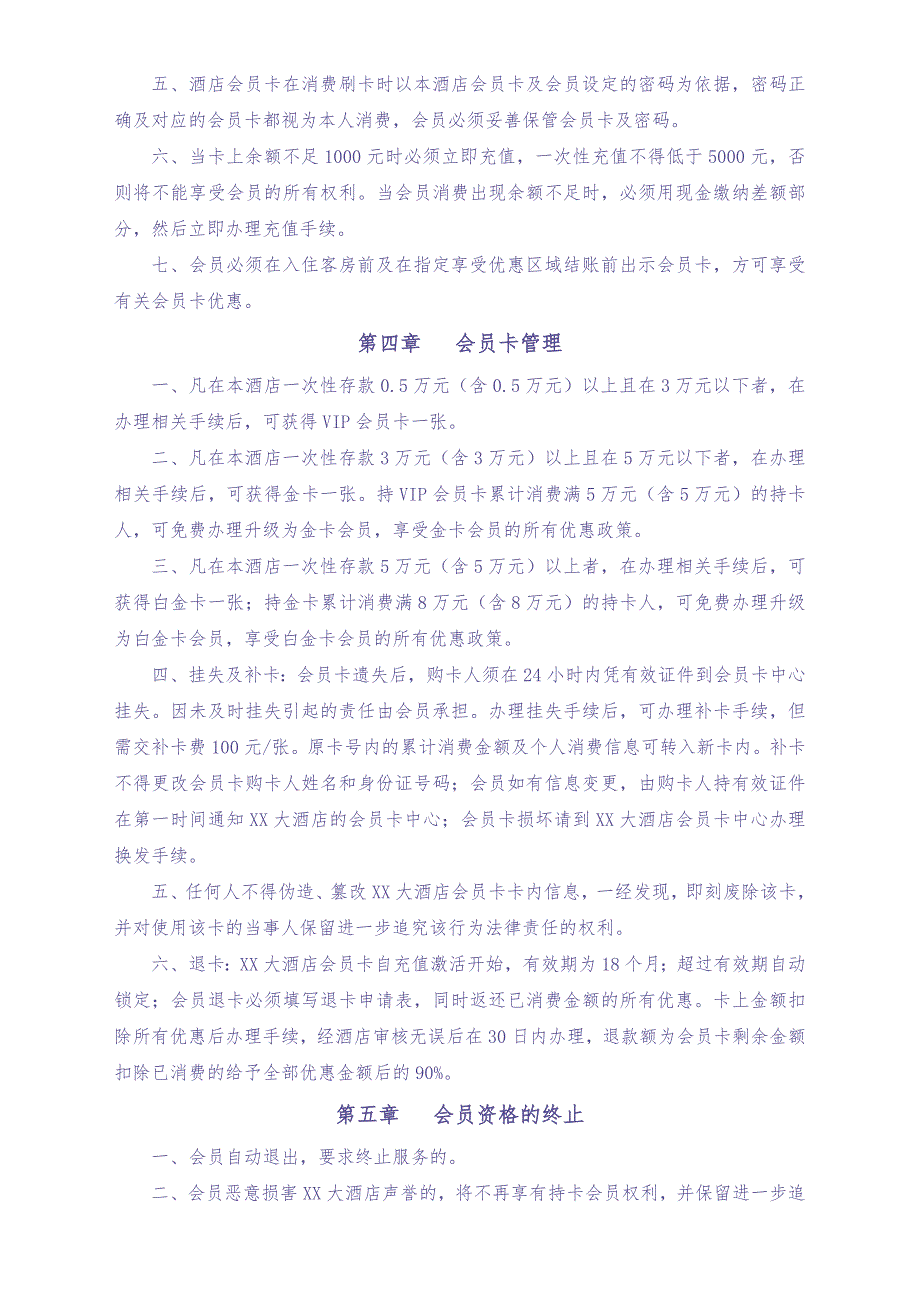 五、酒店会员卡在消费刷卡时以本酒店会员卡及会员设定的密码为依据，密码正
确及对应的会员卡都视为本人消费，会员必须妥善保管会员卡及密码。
六、当卡上余额不足 1000 元时必须立即充值，一次性充值不得低于 5000 元，否
则将不能享受会员的所有权利。当会员消费出现余额不足时，必须用现金缴纳差额部
分，然后立即办理充值手续。
七、会员必须在入住客房前及在指定享受优惠区域结账前出示会员卡，方可享受
有关会员卡优惠。
第四章 会员卡管理
一、凡在本酒店一次性存款 0.5 万元（含 0.5 万元）以上且在 3 万元以下者，在
办理相关手续后，可获得 VIP 会员卡一张。
二、凡在本酒店一次性存款 3 万元（含 3 万元）以上且在 5 万元以下者，在办理
相关手续后，可获得金卡一张。持 VIP 会员卡累计消费满 5 万元（含 5 万元）的持卡
人，可免费办理升级为金卡会员，享受金卡会员的所有优惠政策。
三、凡在本酒店一次性存款 5 万元（含 5 万元）以上者，在办理相关手续后，可
获得白金卡一张；持金卡累计消费满 8 万元（含 8 万元）的持卡人，可免费办理升级
为白金卡会员，享受白金卡会员的所有优惠政策。
四、挂失及补卡：会员卡遗失后，购卡人须在 24 小时内凭有效证件到会员卡中心
挂失。因未及时挂失引起的责任由会员承担。办理挂失手续后，可办理补卡手续，但
需交补卡费 100 元/张。原卡号内的累计消费金额及个人消费信息可转入新卡内。补卡
不得更改会员卡购卡人姓名和身份证号码；会员如有信息变更，由购卡人持有效证件
在第一时间通知 XX 大酒店的会员卡中心；会员卡损坏请到 XX 大酒店会员卡中心办理
换发手续。
五、任何人不得伪造、篡改 XX 大酒店会员卡卡内信息，一经发现，即刻废除该卡，
并对使用该卡的当事人保留进一步追究该行为法律责任的权利。
六、退卡：XX 大酒店会员卡自充值激活开始，有效期为 18 个月；超过有效期自动
锁定；会员退卡必须填写退卡申请表，同时返还已消费金额的所有优惠。卡上金额扣
除所有优惠后办理手续，经酒店审核无误后在 30 日内办理，退款额为会员卡剩余金额
扣除已消费的给予全部优惠金额后的 90%。
第五章 会员资格的终止
一、会员自动退出，要求终止服务的。
二、会员恶意损害 XX 大酒店声誉的，将不再享有持卡会员权利，并保留进一步追